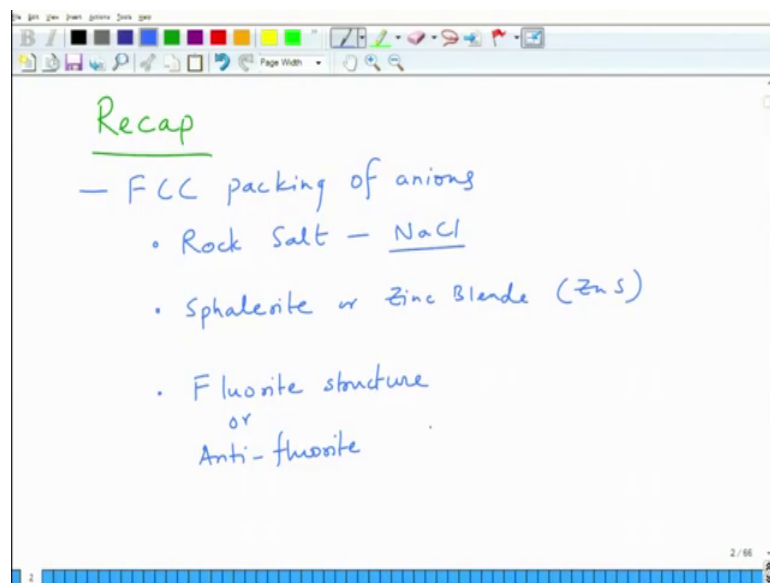 File Edit View Insert Actions Tools Help
B I Page Width
Recap
— FCC packing of anions
• Rock Salt — NaCl
• Sphalerite or Zinc Blende (ZnS)
• Fluorite structure
or
Anti-fluorite
2 / 66
2